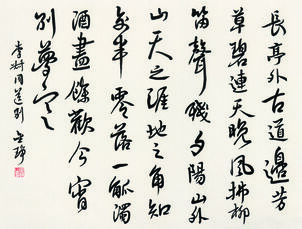 長亭外古道邊芳
草碧連天晚風拂柳
笛聲殘夕陽山外
山天之涯地之角知
交半零落一瓢濁
酒盡餘歡今宵
別夢寒
李叔同送別